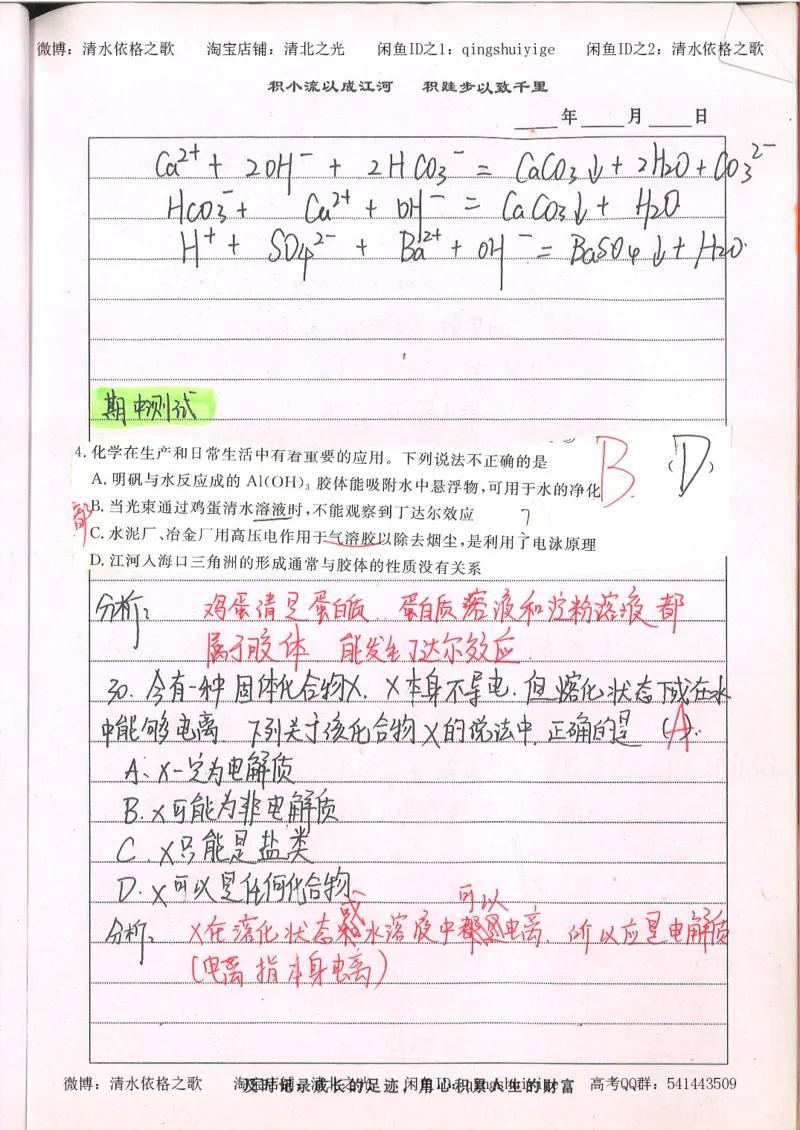 微博：清水依格之歌 淘宝店铺：清北之光 闲鱼ID之1：qingshuiyige 闲鱼ID之2：清水依格之歌
积小流以成江河 积跬步以致千里
年 月 日
Ca²⁺ + 2OH⁻ + 2HCO₃⁻ = CaCO₃↓ + 2H₂O + CO₃²⁻
HCO₃⁻ + Ca²⁺ + OH⁻ = CaCO₃↓ + H₂O
H⁺ + SO₄²⁻ + Ba²⁺ + OH⁻ = BaSO₄↓ + H₂O.
期中测试
4. 化学在生产和日常生活中有着重要的应用。下列说法不正确的是 B. (D)
A. 明矾与水反应成的 Al(OH)₃ 胶体能吸附水中悬浮物,可用于水的净化
部 B. 当光束通过鸡蛋清水溶液时,不能观察到丁达尔效应 ?
C. 水泥厂、冶金厂用高压电作用于气溶胶以除去烟尘,是利用了电泳原理
D. 江河入海口三角洲的形成通常与胶体的性质没有关系
分析： 鸡蛋清是蛋白质 蛋白质溶液和淀粉溶液都
属于胶体 能发生丁达尔效应.
30. 今有一种固体化合物X, X本身不导电, 但熔化状态下或在水
中能够电离 下列关于该化合物X的说法中, 正确的是 (A).
A、X一定为电解质
B. X可能为非电解质
C. X只能是盐类
D. X可以是任何化合物
分析： X在溶化状态或水溶液中可以电离, 所以应是电解质
(电离指本身电离)
微博：清水依格之歌 淘宝店铺：清北之光 闲鱼ID：qingshuiyige 高考QQ群：541443509
及时记录成长的足迹，用心积累人生的财富